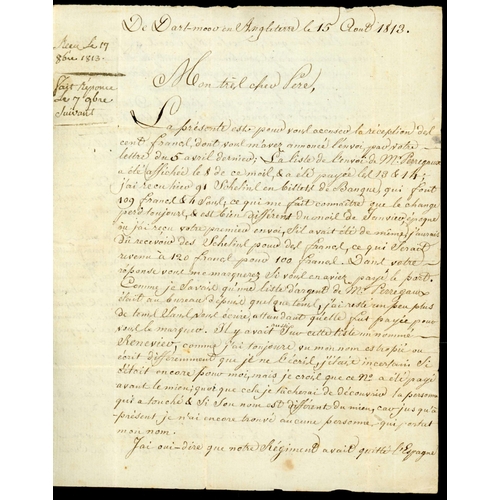 De Dartmoor en Angleterre le 15 Aout 1813.
Recu le 17
8bre 1813.
fait reponce
le 7 9bre
suivant
Mon très cher Pere,
La présente est pour vous accuser la réception des
cent francs, dont vous m'avez annoncé l'envoi par votre
lettre du 5 avril dernier; La liste de l'envoi de Mr. Perregaux
a été affichée le 8 de ce mois, & a été payée les 13 & 14;
j'ai recu hier 91 Schelins en billets de Banque, qui font
109 francs & 4 Sous; ce qui me fait connaître que le change
perd toujours, & est bien différent du mois de Janvier, époque
où j'ai reçu votre premier envoi, S'il avait été de même, j'aurais
du recevoir des Schelins pour des francs, ce qui Serait
revenu à 120 francs pour 100 francs. Dans votre
réponse vous me marquerez Si vous en aviez payé le port.
Comme je Savais qu'une liste d'argent de Mr. Perregaux
était au bureau depuis quelque tems, j'ai resté un peu plus
de tems Sans vous écrire, attendant qu'elle fut payée, pour
vous le marquer. Il y avait aussi Sur cette liste un nommé
Renevier, comme j'ai toujours vu mon nom estropié ou
écrit différemment que je ne l'écris, j'étais incertain Si
c'était encore pour moi, mais je crois que ce No. a été payé
avant le mien; quoi que cela je tâcherai de découvrir la personne
qui a touché & Si Son nom est différent du mien, car jusqu'à
présent je n'ai encore trouvé aucune personne qui portât
mon nom.
J'ai oui-dire que notre Régiment avait quitté l'Espagne